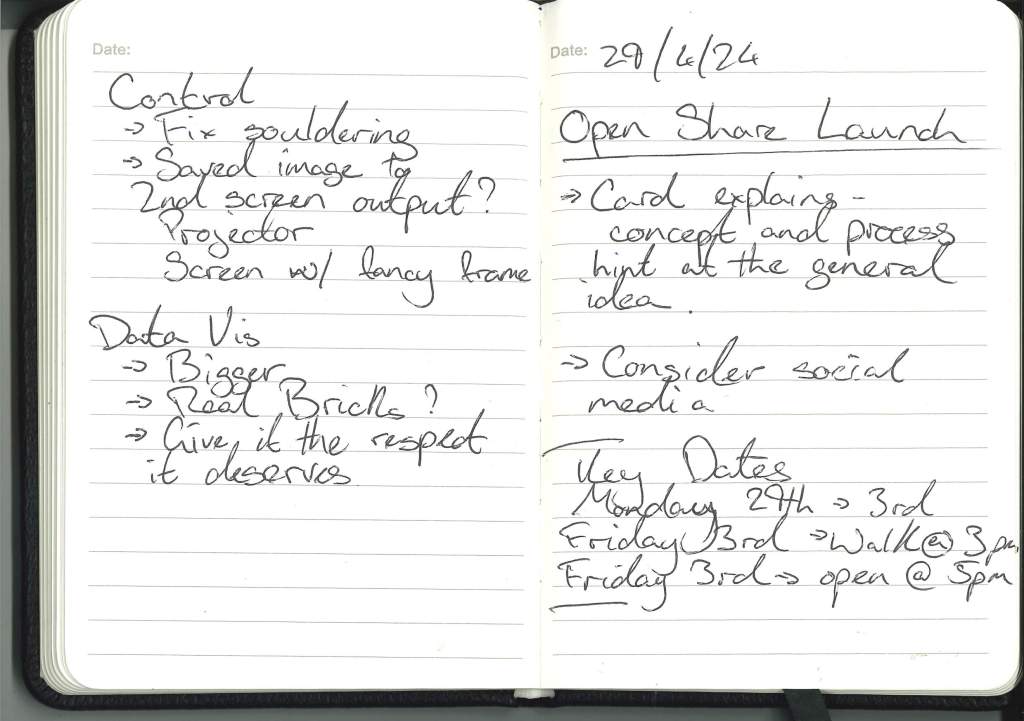 Date:
Control
→ Fix souldering
→ Saved image to
2nd screen output?
Projector
Screen w/ fancy frame
Data Vis
→ Bigger
→ Real Bricks?
→ Give it the respect
it deserves
Date: 29/4/24
Open Share Launch
→ Card explains -
concept and process
hint at the general
idea.
→ Consider social
media
Key Dates
Monday 29th → 3rd
Friday 3rd → Walk @ 3pm
Friday 3rd → open @ 5pm